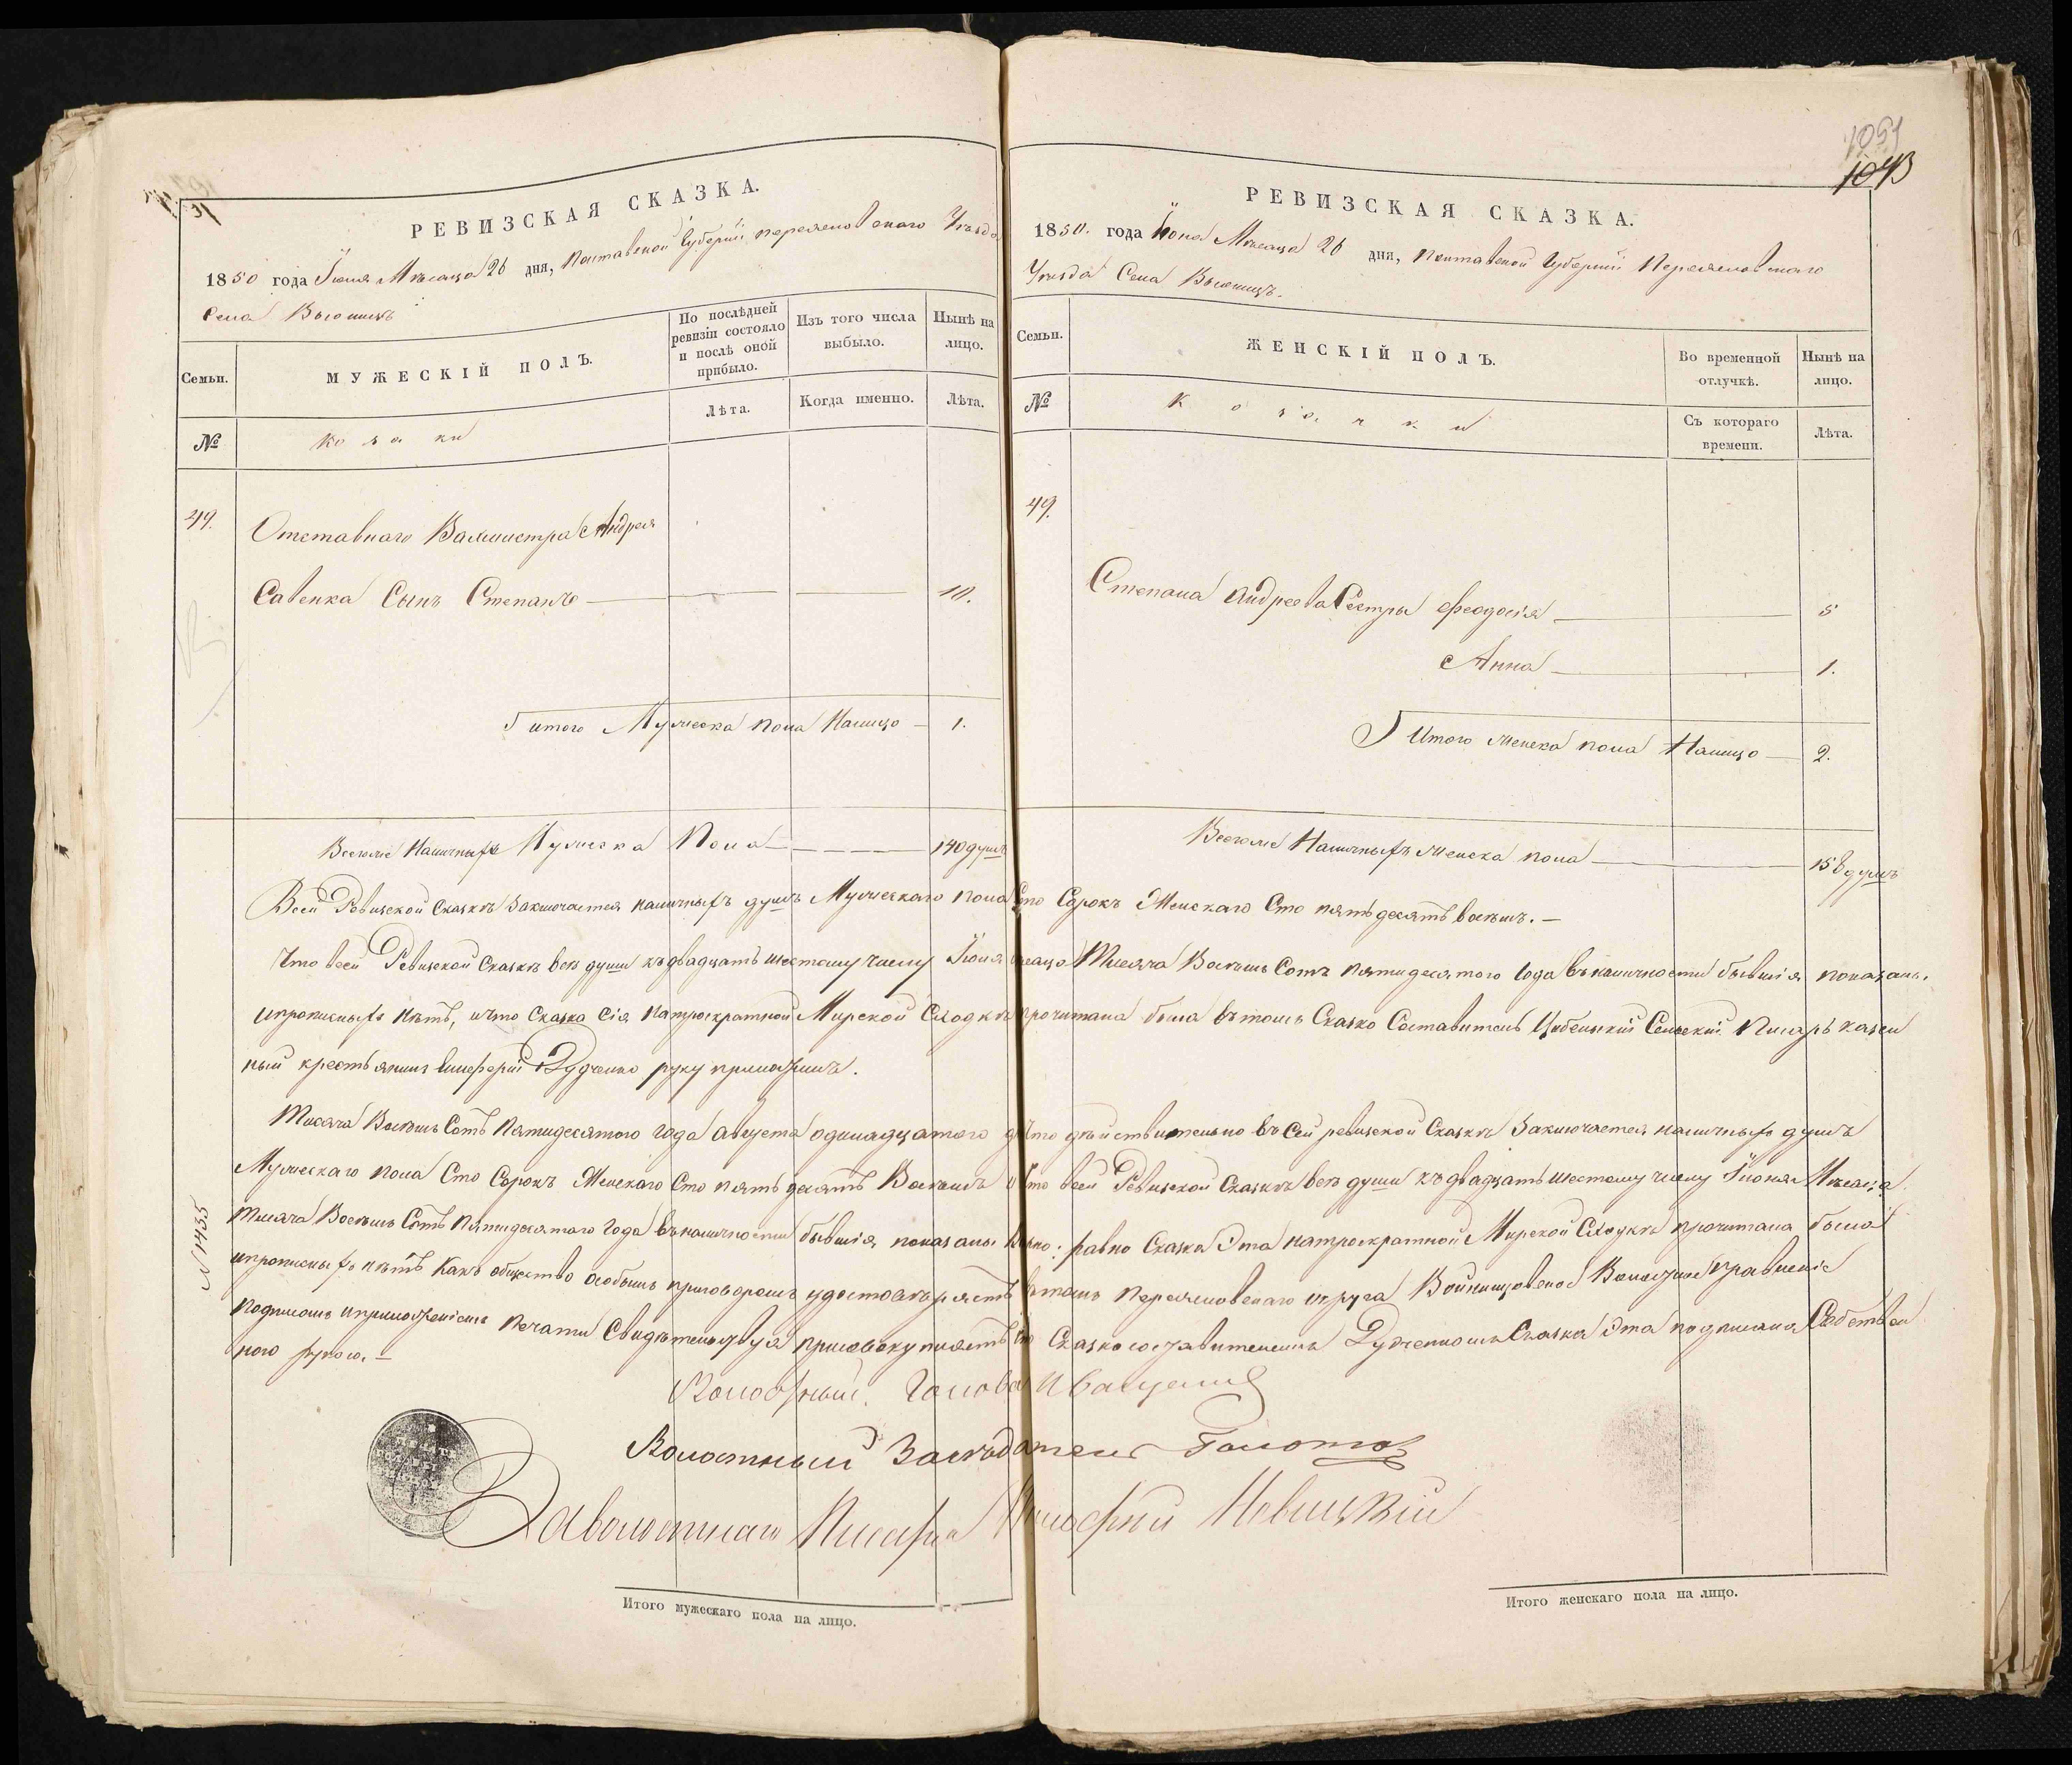 1051
1043
РЕВИЗСКАЯ СКАЗКА.
1850 года Іюня Мѣсяца 26 дня, Полтавской Губерніи Переяславскаго Уѣзда
Села
Семьи.
МУЖЕСКІЙ ПОЛЪ.
По послѣдней ревизіи состояло и послѣ оной прибыло.
Изъ того числа выбыло.
Нынѣ на лицо.
№
Козаки
Лѣта.
Когда именно.
Лѣта.
49.
Отставнаго Вахмистра Андрея
Савенка Сынъ Степанъ
10.
Итого Мужеска пола Налицо — 1.
Всегоже Наличныхъ Мужеска Пола 140 душъ
РЕВИЗСКАЯ СКАЗКА.
1850. года Іюня Мѣсяца 26 дня, Полтавской Губерніи Переяславскаго
Уѣзда Села
Семьи.
ЖЕНСКІЙ ПОЛЪ.
Во временной отлучкѣ.
Нынѣ на лицо.
№
Козачки
Съ котораго времени.
Лѣта.
49.
Степана Андреева Сестры Феодосія — 5
Анна — 1.
Итого женска пола Налицо — 2.
Всегоже Наличныхъ женска пола — 158 душъ
Всей Ревизской Сказкѣ Заключается наличныхъ душъ Мужескаго пола Сто Сорокъ Женскаго Сто пятьдесятъ восемь. —
Что всей Ревизской Сказкѣ всѣ души къ двадцать шестому числу Іюня мѣсяца Тысяча Восемь Сотъ пятидесятого Года въ наличности бывшія показаны.
ипрописныхъ нѣтъ, ичто Сказка Сія натроекратной Мирской Сходкѣ прочитана была въ томъ Сказко Составитель Сельскій Писарь казен
ный крестьянинъ Дудченко руку приложилъ.
Тысяча Восемь Сотъ Пятидесятого года Августа одинадцатого дня Что дѣйствительно въ Сей ревизской Сказкѣ Заключается наличныхъ душъ
Мужескаго пола Сто Сорокъ Женскаго Сто пять десятъ Восемь и Что всей Ревизской Сказкѣ всѣ души къ двадцать шестому числу Іюня Мѣсяца
Тысяча Восемь Сотъ Пятидесятаго Года въ наличности бывшія показаны Вѣрно; равно Сказка Эта натроекратной Мирской Сходкѣ прочитана была
ипрописныхъ нѣтъ Какъ общество особымъ приговоромъ удостовѣряетъ въ томъ Переяславскаго округа Волостное Правленіе
подписомъ иприложеніемъ печати Свидѣтельствуя присовокупляетъ что Сказкосоставителемъ Дудченкомъ Сказка Эта подписана Собствен
ного рукою. —
№ 1435
Волостный Голова Иващенко
Волостный Засѣдатель
За волостнаго Писаря Невицкій
Итого мужескаго пола на лицо.
Итого женскаго пола на лицо.